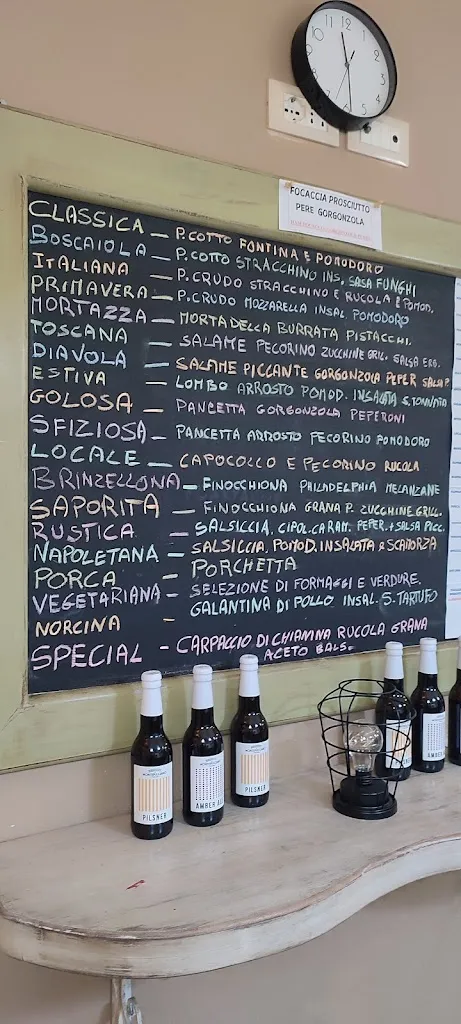 12
FOCACCIA PROSCIUTTO
PERE GORGONZOLA
CLASSICA – P.COTTO FONTINA E POMODORO
BOSCAIOLA – P.COTTO STRACCHINO INS. SASA FUNGHI
ITALIANA – P.CRUDO STRACCHINO E RUCOLA E POMOD.
PRIMAVERA – P.CRUDO MOZZARELLA INSAL. POMODORO
MORTAZZA – MORTADELLA BURRATA PISTACCHI.
TOSCANA – SALAME PECORINO ZUCCHINE GRIL. SALSA ERB.
DIAVOLA – SALAME PICCANTE GORGONZOLA PEPER SALSA P.
ESTIVA – LOMBO ARROSTO POMOD. INSALATA S. TONNATA
GOLOSA – PANCETTA GORGONZOLA PEPERONI
SFIZIOSA – PANCETTA ARROSTO PECORINO POMODORO
LOCALE – CAPOCOLLO E PECORINO RUCOLA
BRINZELLONA – FINOCCHIONA PHILADELPHIA MELANZANE
SAPORITA – FINOCCHIONA GRANA P. ZUCCHINE GRILL.
RUSTICA – SALSICCIA. CIPOL.CARAM. PEPER. + SALSA PICC.
NAPOLETANA – SALSICCIA. POMOD. INSALATA & SCAMORZA
PORCA – PORCHETTA
VEGETARIANA – SELEZIONE DI FORMAGGI E VERDURE.
NORCINA – GALANTINA DI POLLO INSAL. S. TARTUFO
SPECIAL – CARPACCIO DI CHIANINA RUCOLA GRANA
ACETO BALS.
PILSNER
AMBER
PILSNER
AMBER